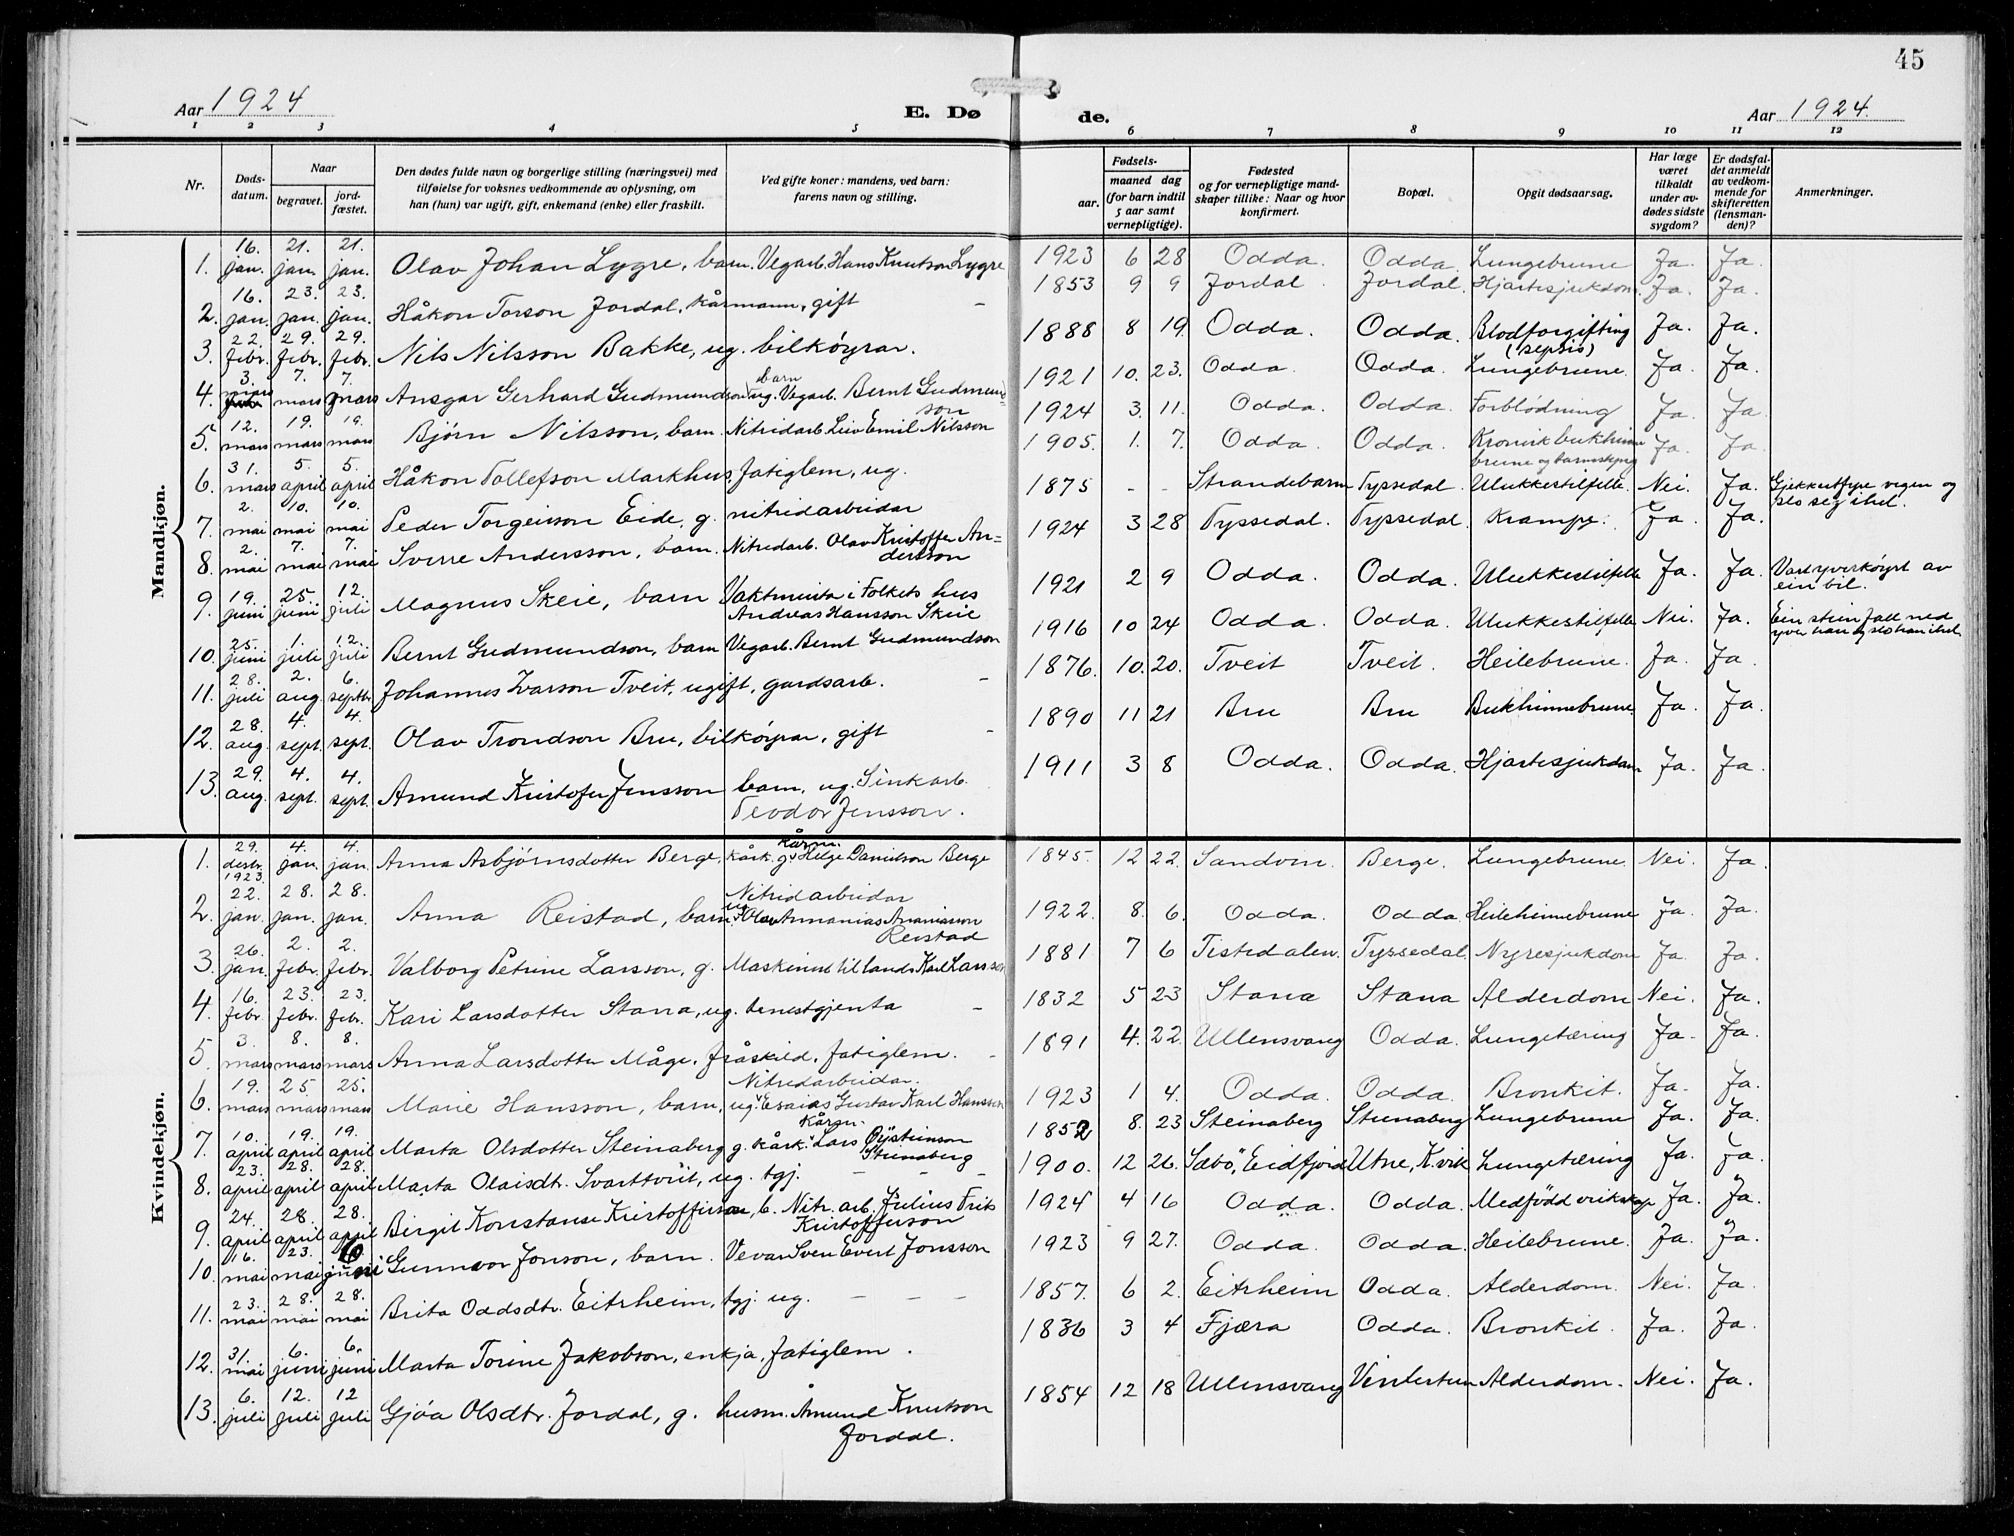 45
Aar 1924
E. Dø
de.
Aar 1924.
1 2 3 4 5 6 7 8 9 10 11 12
Nr.
Døds-
datum.
Naar
begravet.
jord-
fæstet.
Den dødes fulde navn og borgerlige stilling (næringsvei) med
tilføielse for voksnes vedkommende av oplysning, om
han (hun) var ugift, gift, enkemand (enke) eller fraskilt.
Ved gifte koner: mandens, ved barn:
farens navn og stilling.
Fødsels-
aar. maaned dag
(for barn indtil
5 aar samt
vernepligtige).
Fødested
og for vernepligtige mand-
skaper tillike: Naar og hvor
konfirmert.
Bopæl.
Opgit dødsaarsag.
Har læge
været
tilkaldt
under av-
dødes sidste
sygdom?
Er dødsfal-
det anmeldt
av vedkom-
mende for
skifteretten
(lensman-
den)?
Anmerkninger.
Mandkjøn.
1. 16. jan. 21. jan. 21. jan. Olav Johan Lygre, barn. Vegarb. Hans Knutson Lygre 1923 6 28 Odda. Odda. Lungebrune Ja. Ja.
2. 16. jan. 23. jan. 23. jan. Håkon Torson Jordal, kårmann, gift - 1853 9 9 Jordal. Jordal. Hjartesjukdom. Ja. Ja.
3. 22. febr. 29. febr. 29. febr. Nils Nilsson Bakke, ug. bilkøyrar. 1888 8 19. Odda. Odda. Blodforgifting (sepsis) Ja. Ja.
4. 3. mars 7. mars 7. mars Ansgar Gerhard Gudmundson, ug. barn Vegarb. Bernt Gudmundson 1921 10. 23. Odda. Odda. Lungebrune. Ja. Ja.
5. 12. mars 19. mars 19. mars Bjørn Nilsson, barn. Nitridarb. Leiv Emil Nilsson 1924 3. 11. Odda. Odda. Forblødning Ja. Ja.
6. 31. mars 5. april 5. april Håkon Tollefson Markhus, fatiglem, ug. 1905. 1. 7. Odda. Odda. Kronisk bukhinne brune Ja. Ja.
7. 2. mai 10. mai 10. mai Peder Torgeirson Eide, g. nitridarbeidar 1875 - - Strandebarm Tyssedal. Ulukkestilfelle. Nei. Ja. Gjekk utfyre vegen og slo seg ihel.
8. 2. mai 7. mai 7. mai Sverre Andersson, barn. Nitridarb. Olav Kristoffer Andersson 1924 3 28 Tyssedal. Tyssedal. Krampe. Ja. Ja.
9. 19. juni 25 juni 12. juli Magnus Skeie, barn Vaktmeistar i Folkets hus Andreas Hansson Skeie 1921 2 9 Odda. Odda. Ulukkestilfelle Ja. Ja. Vart yverkøyrt av ein bil.
10. 25. juni 1. juli 12. juli Bernt Gudmundson, barn Vegarb. Bernt Gudmundson 1916 10 24 Odda. Odda. Ulukkestilfelle Nei. Ja. Ein stein fall ned yver han og slo han ihel.
11. 28. juli 2. aug. 6. septbr. Johannes Ivarson Tveit, ugift, gardsarb. - 1876. 10. 20. Tveit Tveit. Heilebrune. Ja. Ja.
12. 28. aug. 4. sept. 4. sept. Olav Trondson Bru, bilkøyrar, gift - 1890 11 21 Bru Bru Bukhinnebrune. Ja. Ja.
13. 29. aug. 4. sept. 4. sept. Amund Kristofer Jensson barn, ug. Sinkarb. Teodor Jensson. 1911 3 8 Odda. Odda. Hjartesjukdom Ja. Ja.
Kvindekjøn.
1. 29. desbr. 1923. 4. jan. 4. jan. Anna Asbjørnsdotter Berge, kårk. g. kårm. Helge Danielson Berge 1845. 12 22. Sandvin. Berge. Lungebrune. Nei. Ja.
2. 22. jan. 28. jan. 28. jan. Anna Reistad, barn. ug. Nitridarbeidar Olav Annanias Ananiasson Reistad 1922. 8. 6. Odda. Odda Heilehinnebrune Ja. Ja.
3. 26. jan. 2. febr. 2. febr. Valborg Petrine Larsson, g. Maskinist til lands Karl Larsson 1881 7 6 Tistedalen. Tyssedal. Nyresjukdom Ja. Ja.
4. 16. febr. 23. febr. 23. febr. Kari Larsdotter Stana, ug. tenestgjenta - 1832 5 23 Stana Stana Alderdom Nei. Ja.
5. 3. mars 8. mars 8. mars Anna Larsdotter Måge, fråskild. fatiglem. - 1891 4. 22. Ullensvang Odda. Lungetæring Ja. Ja.
6. 19. mars 25 mars 25. mars Marie Hansson, barn, ug. Nitridarbeidar. Esaias Gustav Karl Hansson 1923 1 4. Odda. Odda. Bronkit. Ja. Ja.
7. 10. april 19. april 19. april Marta Olsdotter Steinaberg g. kårk. kårm. Lars Øysteinson Steinaberg 1852 8. 23 Steinaberg Steinaberg Lungebrune Ja. Ja.
8. 23. april 28. april 28. april Marta Olaisdtr. Svarttveit, ug. tgj. - - - 1900. 12 26. Sæbø, Eidfjord Utne, K.vik Lungetæring Ja. Ja.
9. 24. april 28. april 28. april Birgit Konstanse Kristofferson, b. Nitr. arb. Julius Frits Kristofferson 1924 4 16 Odda. Odda. Medfødd veikskap Ja. Ja.
10. 16. mai 23. mai 6 juni Gunnvor Jonson, barn. Vevar Sven Evert Jonsson 1923 9 27. Odda. Odda. Heilebrune. Ja. Ja.
11. 23. mai 28. mai 28. mai Brita Oddsdtr. Eitrheim, tgj. ug. - - - 1857. 6 2. Eitrheim Odda. Alderdom. Nei. Ja.
12. 31. mai 6. juni 6. juni Marta Torine Jakobson, enkja, fatiglem. 1836 3 4 Fjæra Odda. Bronkit. Ja. Ja.
13. 6. juli 12. juli 12 juli Gjøa Olsdtr. Jordal, g. husm. Åmund Knutson Jordal. 1854 12 18 Ullensvang Vintertun Alderdom. Nei. Ja.